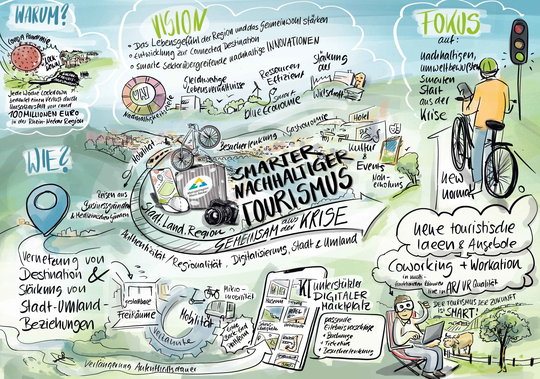 WARUM?
Corona Pandemie
Lockdown
Jede Woche Lockdown
bedeutet einen Verlust durch
von rund
100 MILLIONEN EURO
in der Rhein-Neckar Region
VISION
• Das Lebensgefühl der Region und das Gemeinwohl stärken
• Entwicklung zur Connected Destination
• Smarte sektorübergreifende nachhaltige INNOVATIONEN
Gleichwertige
Lebensverhältnisse
Nachhaltigkeitsziele
Ressourcen
Effizienz
Smart
Blue Economie
Stärkung
der
Wirtschaft
FOKUS
auf:
nachhaltigen,
umweltbewussten,
smarten
Start
aus der
Krise
new
normal
WIE?
Mobilität
Besucherlenkung
Gastronomie
Hotel
Kultur
&
Events
Naherholung
Reisen aus
Businessgründen
SMARTER
NACHHALTIGER
TOURISMUS
Stadt, Land, Region
GEMEINSAM aus der KRISE
Authentizität / Regionalität, Digitalisierung, Stadt & Umland
Vernetzung von
Destination &
Stärkung von
Stadt-Umland-
Beziehungen
Freiräume
Mikro-
mobilität
Mobilität
Verlängerung Aufenthaltsdauer
KI unterstützter
DIGITALER
Marktplatz
passende
Erlebnisvorschläge
+ Buchung
+ Ticketing
+ Besucherlenkung
neue touristische
Ideen & Angebote
Coworking + Workation
live in AR/VR Qualität
DER TOURISMUS DER ZUKUNFT
IST SMART!